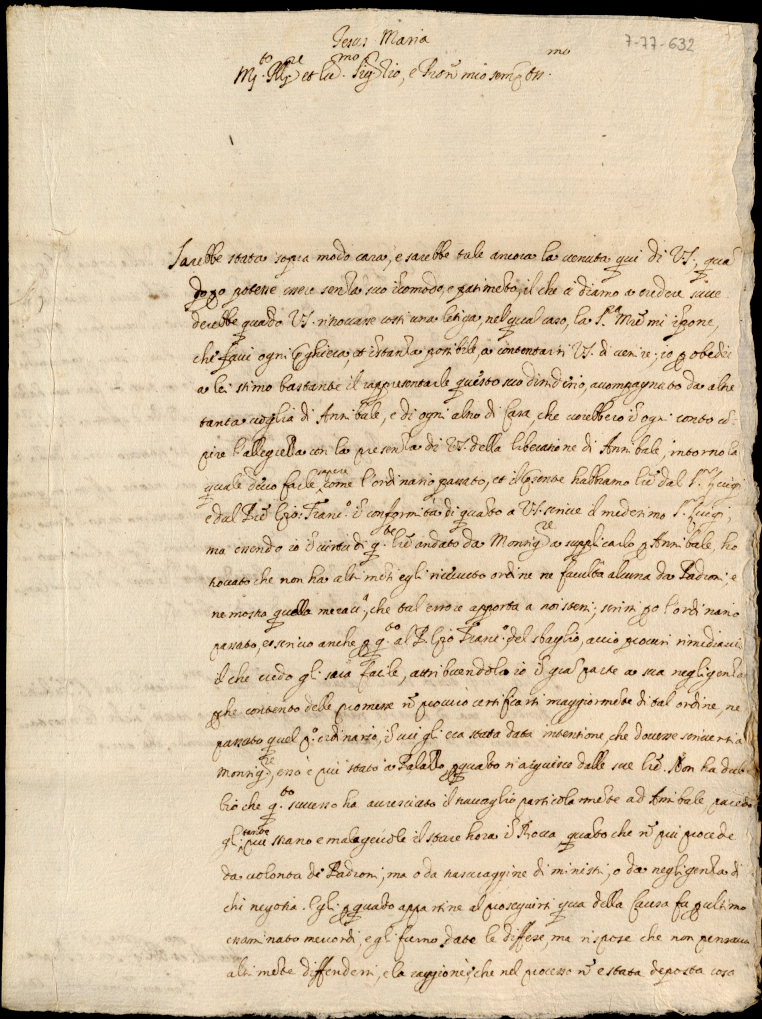 Jesus Maria
7-77-632
Sarebbe stata sopra modo cara, e sarebbe tale ancora la venuta qui di VS, quã
do po potesse essere senza suo icomodo, e patimẽto, il che ci diamo a credere succe
derebbe quãdo VS ritrovasse costi una letica, nel qual caso, la S.ra Mře mi ĩpone,
che facci ogni ghiera, et istanza possibile, a contentarsi VS. di venire; io p obedir
a lei stimo bastante il rappresentarle questo suo disiderio, accompagnato da altre
tanta voglia di Annibale, e di ogni altro di Casa che vorebbero ĩ ogni conto cõ
pire l'allegrezza con la presenza di VS. della liberatione di Annibale, intorno la
quale devo facile sapere come l'ordinario passato, et il psente habbiamo lře dal S.r Luigi
e dal P. Franc.o ĩ conformità di quãto a VS. scrive il medesimo S.r Luigi,
ma essendo io ĩ virtù di q.te lře andato da Monsig.re a supplicarlo p Annibale, ho
trovato che non ha altimẽti egli ricevuto ordine ne facultà alcuna da Padroni; e
ne mostra quella, che tal errore apporta a noi stessi; scrissi po l'ordinario
passato, et scrivo anche p q.to al P. Franc.o del sbaglio, accio procuri rimediarvi
il che credo gli sarà facile, attribuendolo io ĩ grã parte a sua negligenza
pche contento delle promesse nõ procurò certificarsi maggiormẽte di tal ordine, ne
passato quel p.o ordinario, ĩ cui gli era stata data intentione, che dovesse scriversi a
Monsig.re, esso è più stato à Palazzo, p quãto si arguisce dalle sue lře. Non ha dub
bio che q.to successo ha accresciato il travaglio particolarmẽte ad Annibale parendo
gli tanto più strano e malagevole il stare hora ĩ Rocca quãto che nõ più procede
da volontà de Padroni, ma o da trascuraggine di ministri, o da negligenza di
chi negotia. Egli p quãto appartine al proseguirsi qua della Causa fu p ultimo
essaminato mercordì, e gli furno date le diffese, ma rispose che non pensava
altimẽte diffendersi, e la raggione è, che nel processo nõ è stata deposta cosa